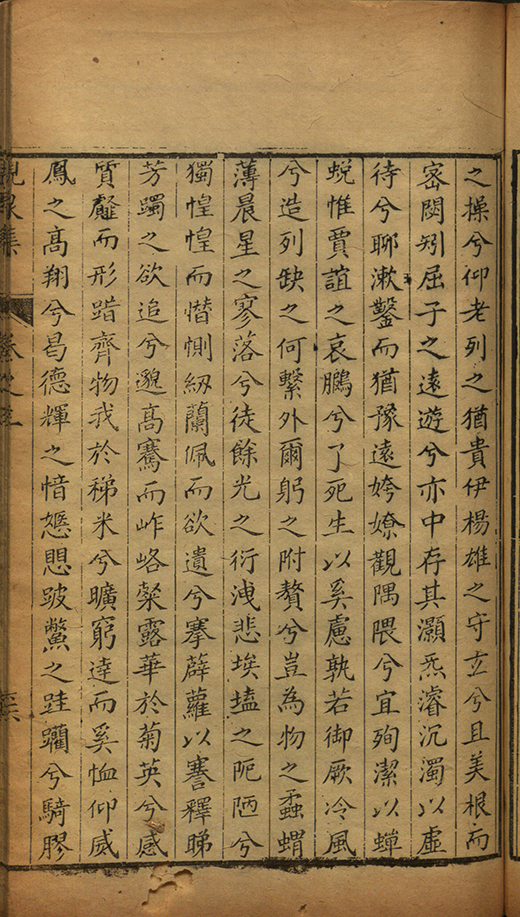 之操兮仰老列之猶貴伊楊雄之守玄兮且美根而
密閎矧屈子之遠遊兮亦中存其灝炁濬沉濁以虛
待兮聊漱鑿而猶豫遠姱嫽觀隅隈兮宜殉潔以蟬
蛻惟賈誼之哀鵩兮了死生以奚慮孰若御厥冷風
兮造列缺之何繫外爾躬之附贅兮豈為物之蟊蝟
薄晨星之寥落兮徒餘光之衍洩悲埃壒之阨陋兮
獨惶惶而憯惻紉蘭佩而欲遺兮搴薜蘿以謇釋睇
芳躅之欲追兮邈高騫而岞峈粲露華於菊英兮感
質麤而形踖齊物我於稊米兮曠窮達而奚恤仰威
鳳之高翔兮曷德輝之愔嬺恖跛鱉之跬躅兮騎膠
集 卷之